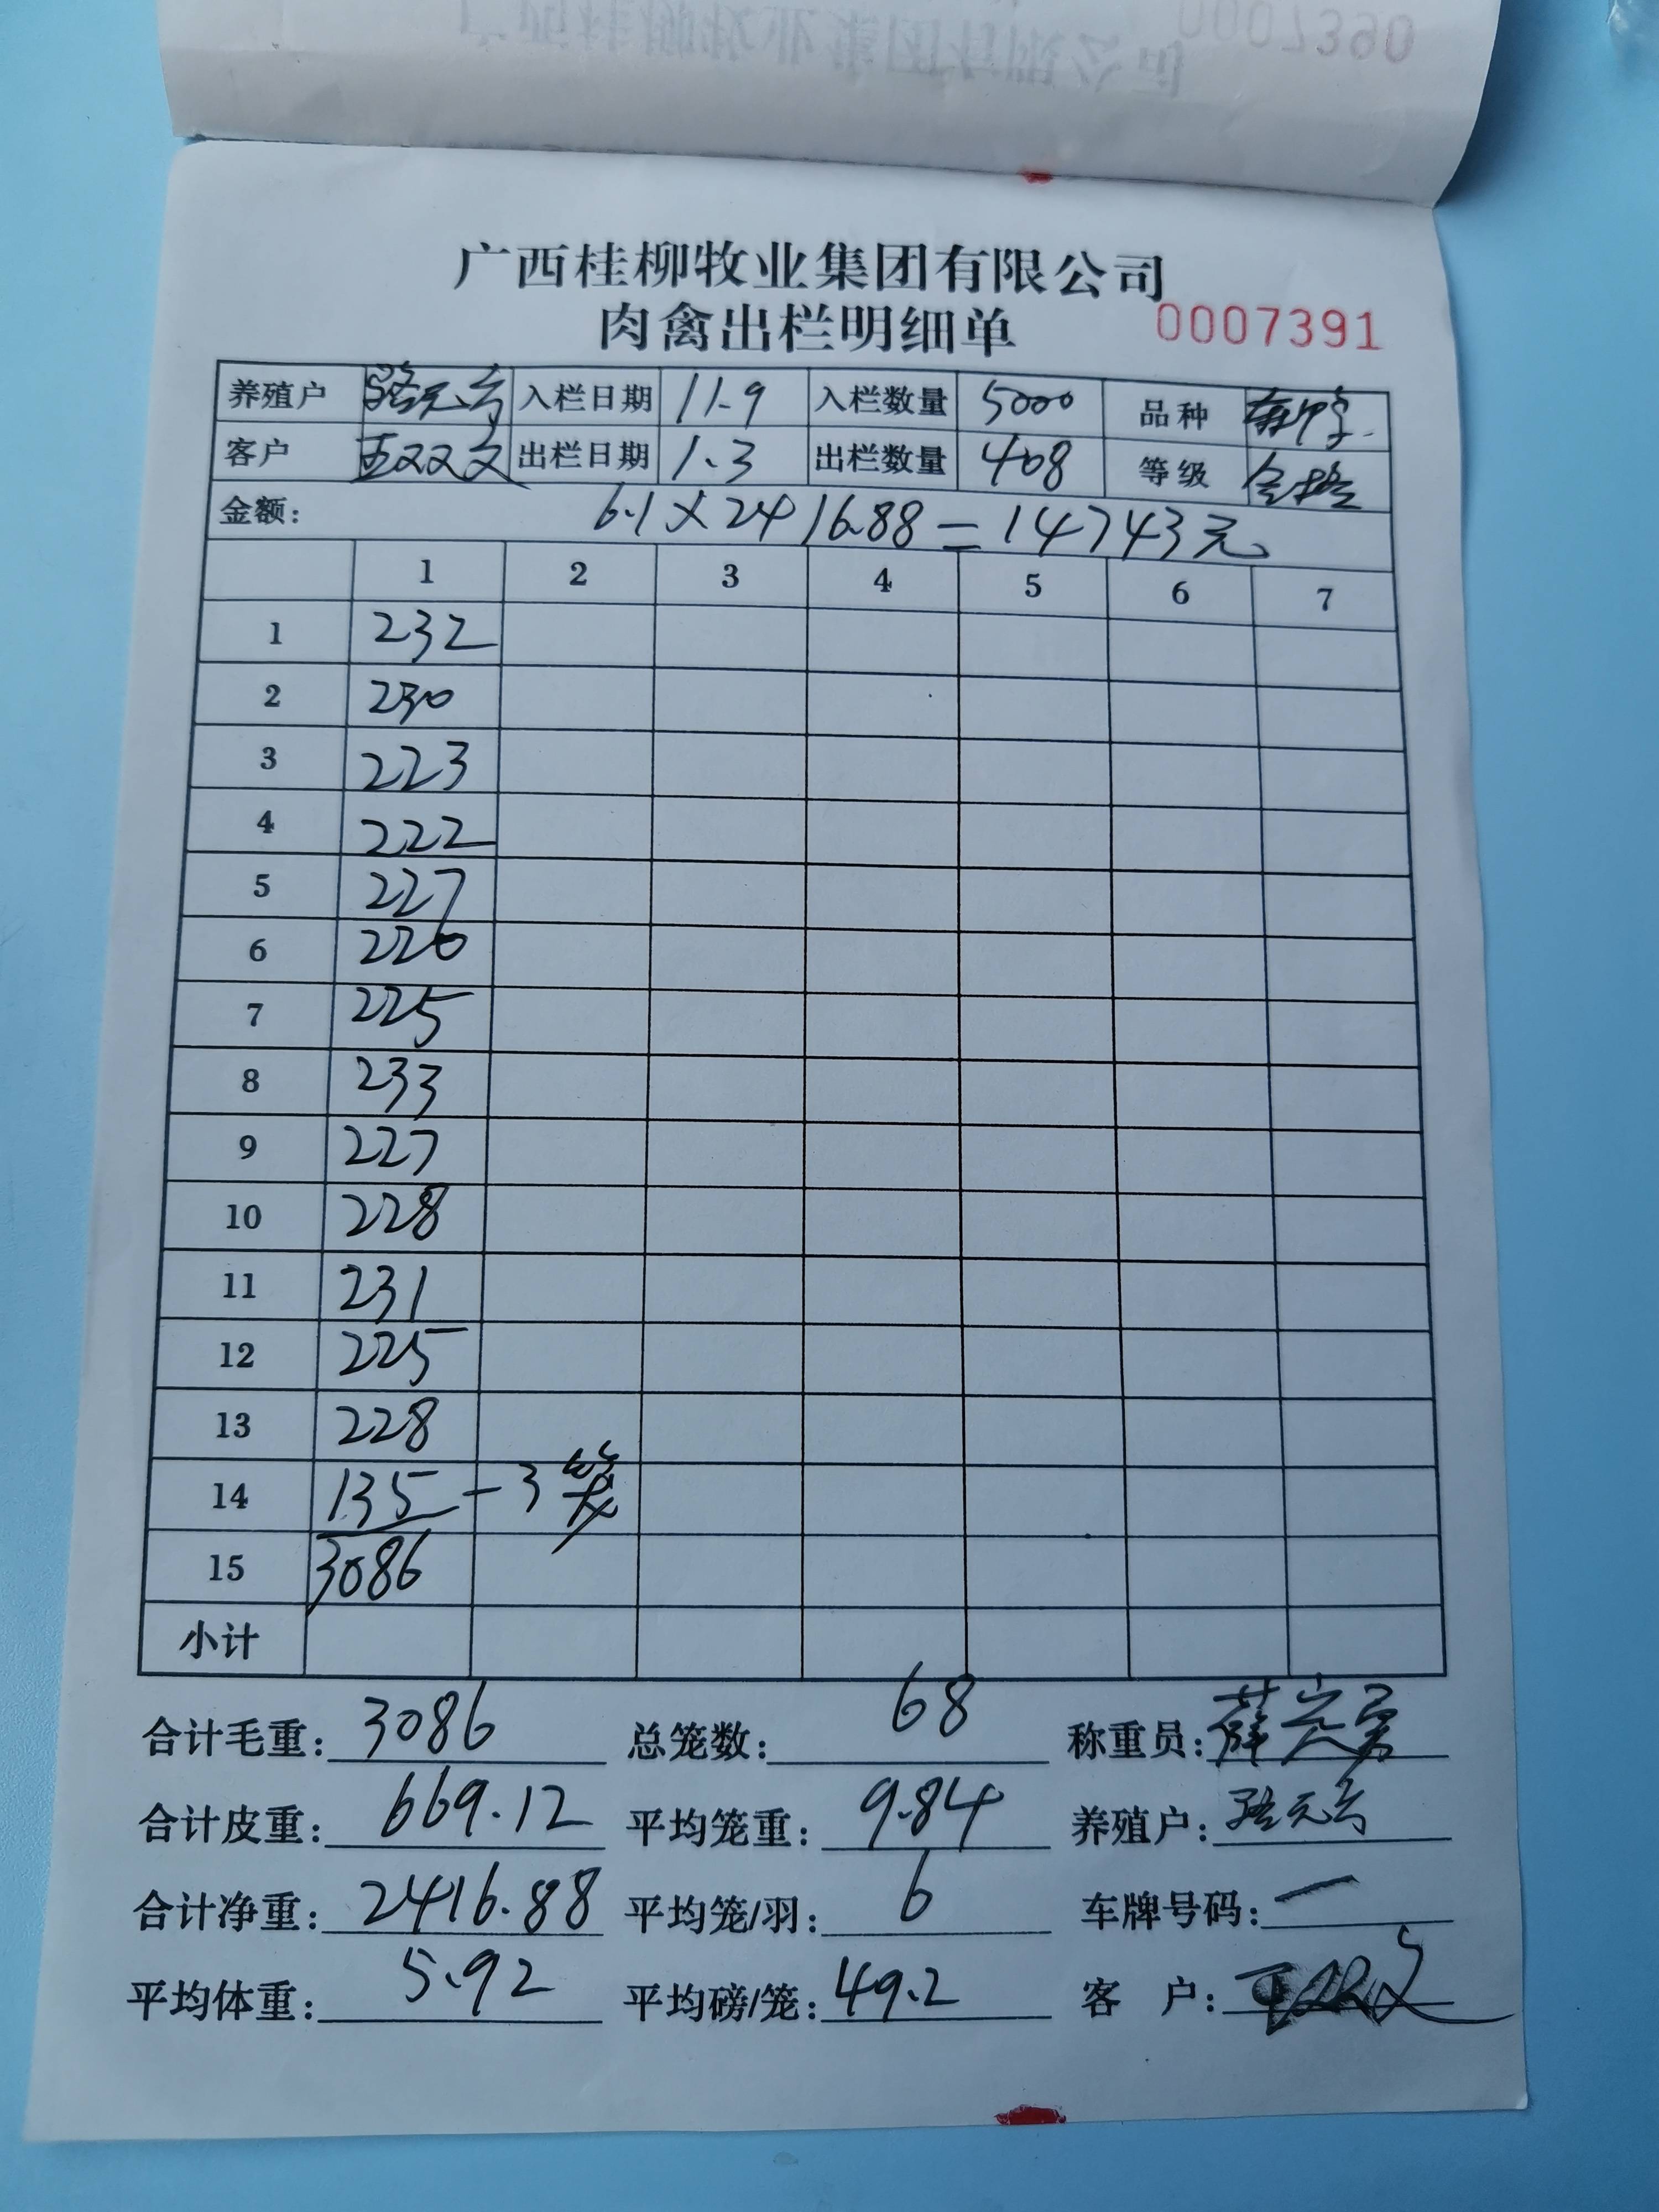 0007390
广西桂柳牧业集团有限公司
肉禽出栏明细单 0007391
养殖户 入栏日期 11.9 入栏数量 5000 品种
客户 王双文 出栏日期 1.3 出栏数量 408 等级
金额: 6.1×2416.88=14743元
1 2 3 4 5 6 7
1 232
2 230
3 223
4 222
5 227
6 220
7 225
8 233
9 227
10 228
11 231
12 225
13 228
14 135 - 3笼
15 3086
小计
合计毛重: 3086 总笼数: 68 称重员:
合计皮重: 669.12 平均笼重: 9.84 养殖户:
合计净重: 2416.88 平均笼/羽: 6 车牌号码: 一
平均体重: 5.92 平均磅/笼: 49.2 客 户: 王双文